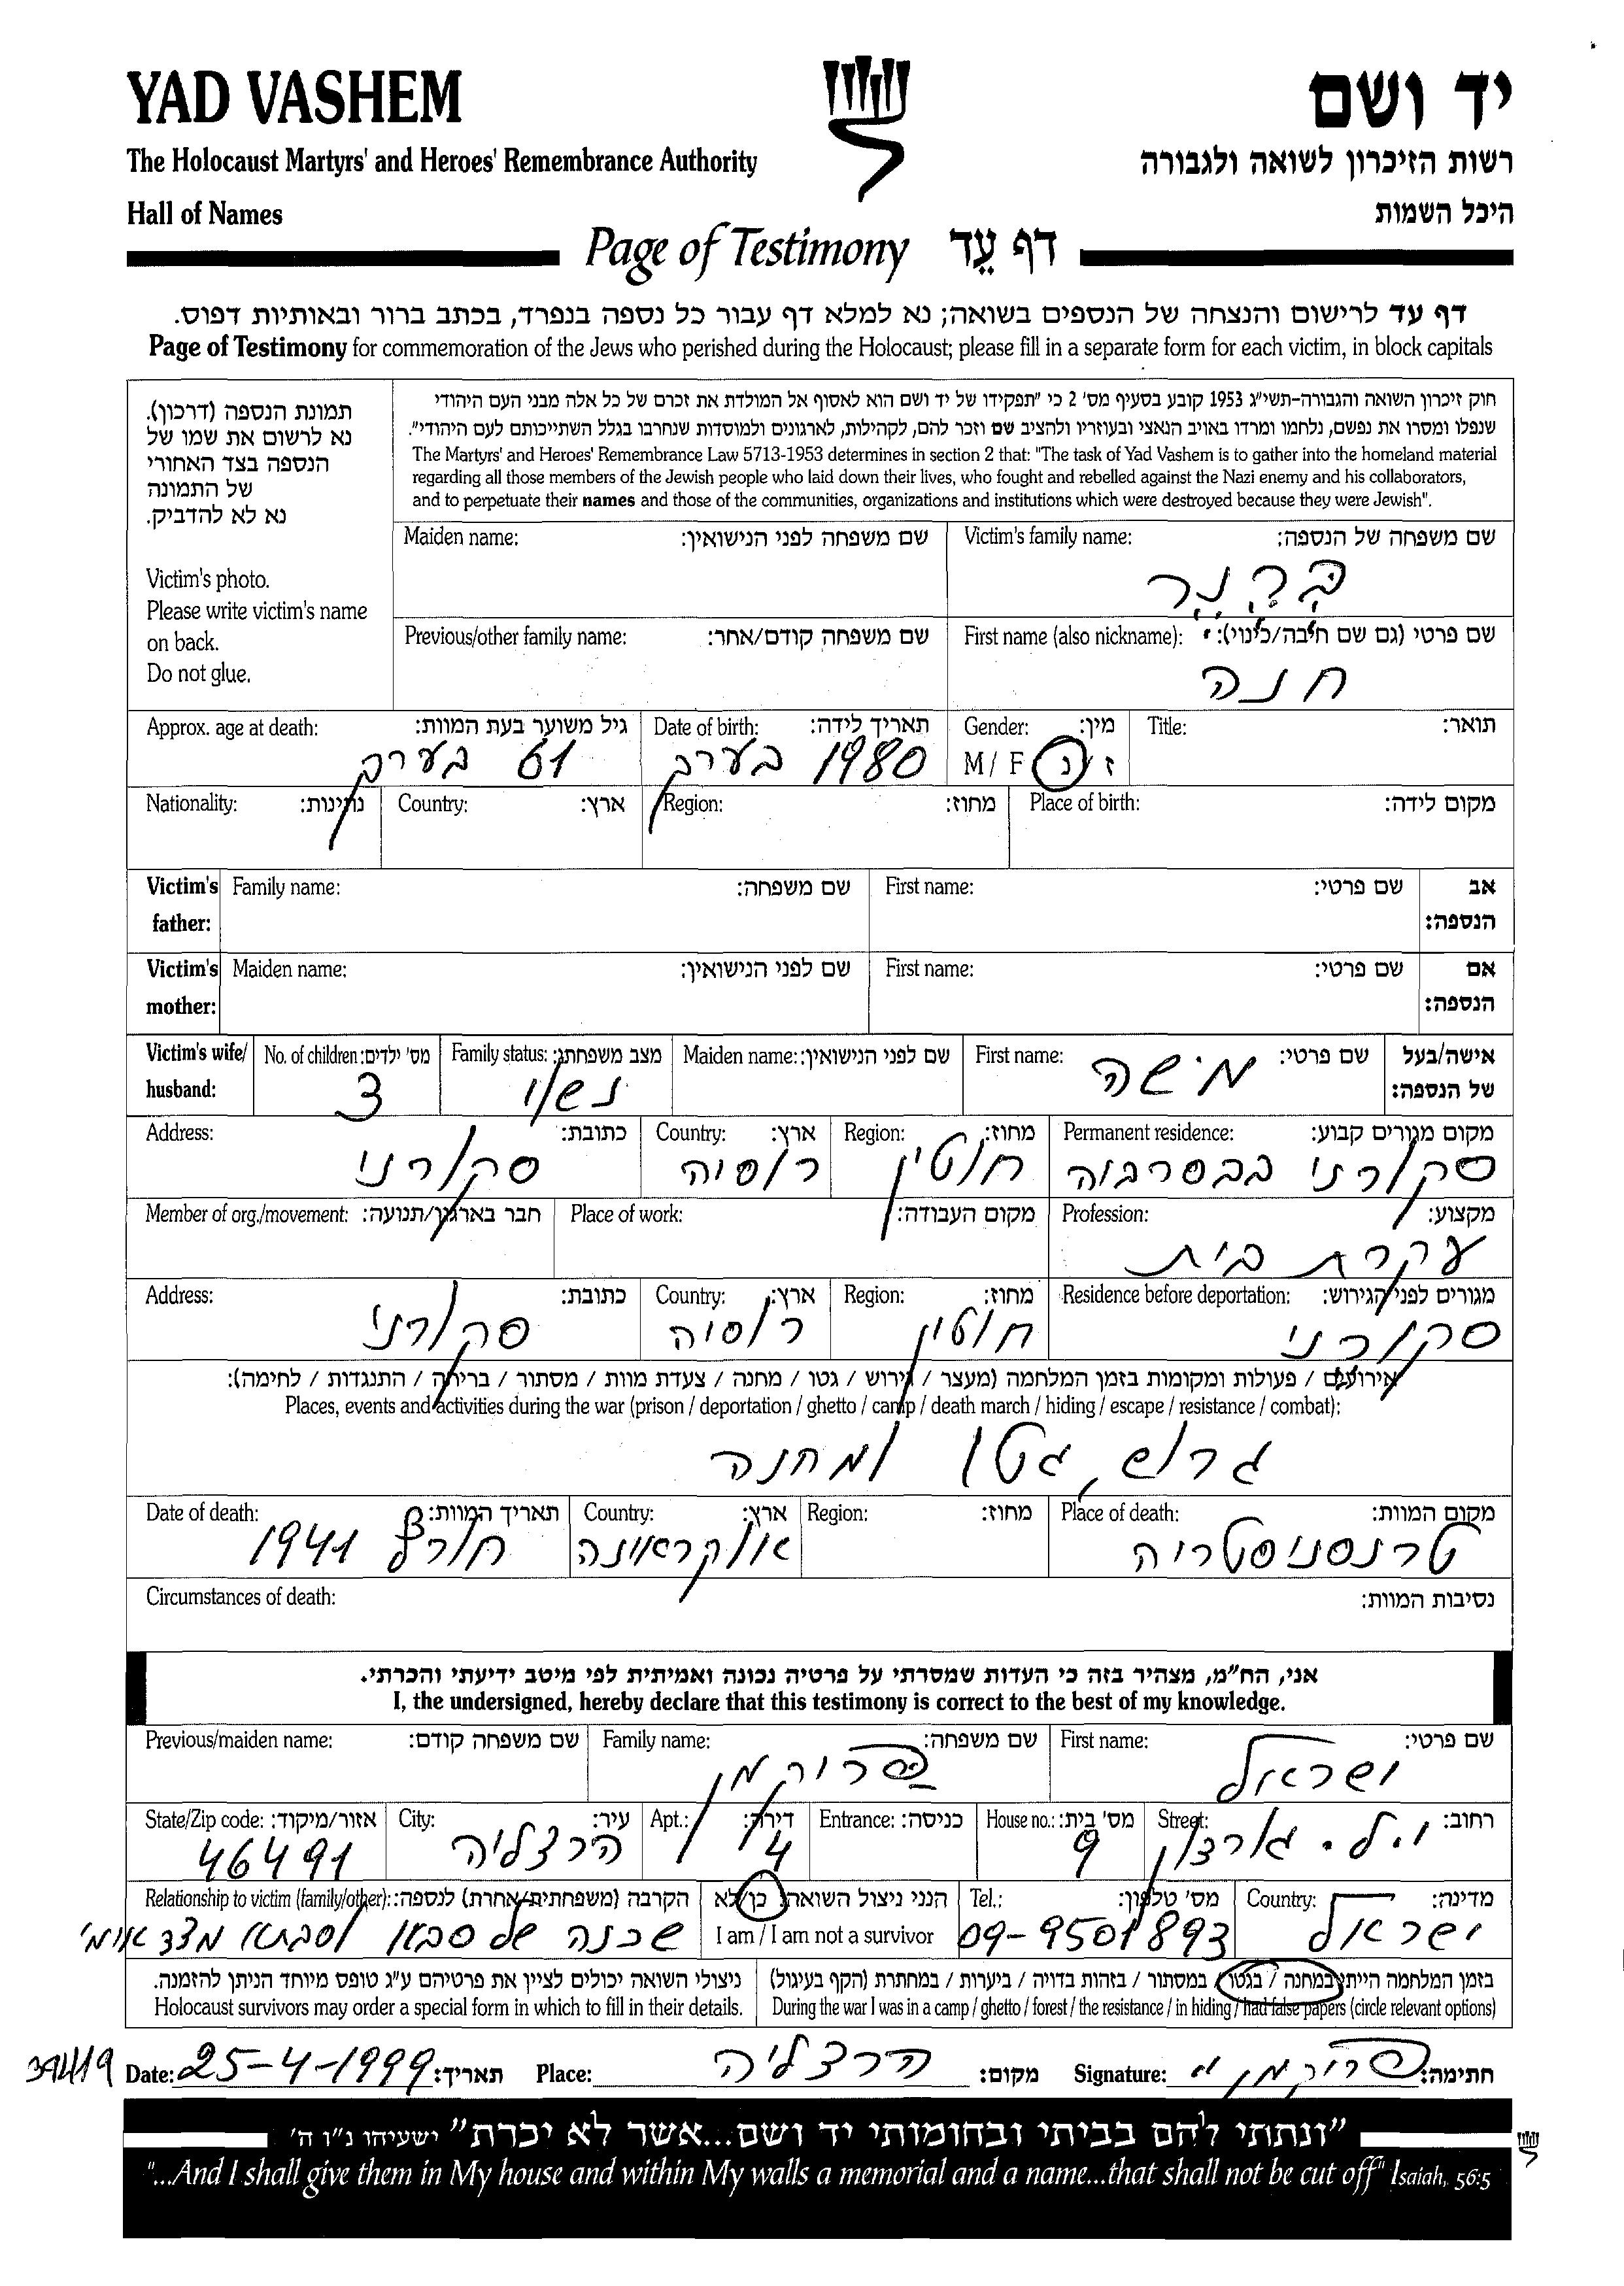 YAD VASHEM
יד ושם
The Holocaust Martyrs' and Heroes' Remembrance Authority
רשות הזיכרון לשואה ולגבורה
Hall of Names
היכל השמות
Page of Testimony דף עֵד
דף עד לרישום והנצחה של הנספים בשואה; נא למלא דף עבור כל נספה בנפרד, בכתב ברור ובאותיות דפוס.
Page of Testimony for commemoration of the Jews who perished during the Holocaust; please fill in a separate form for each victim, in block capitals
תמונת הנספה (דרכון).
נא לרשום את שמו של
הנספה בצד האחורי
של התמונה
נא לא להדביק.
Victim's photo.
Please write victim's name
on back.
Do not glue.
חוק זיכרון השואה והגבורה-תשי"ג 1953 קובע בסעיף מס' 2 כי "תפקידו של יד ושם הוא לאסוף אל המולדת את זכרם של כל אלה מבני העם היהודי
שנפלו ומסרו את נפשם, נלחמו ומרדו באויב הנאצי ובעוזריו ולהציב שם וזכר להם, לקהילות, לארגונים ולמוסדות שנחרבו בגלל השתייכותם לעם היהודי".
The Martyrs' and Heroes' Remembrance Law 5713-1953 determines in section 2 that: "The task of Yad Vashem is to gather into the homeland material
regarding all those members of the Jewish people who laid down their lives, who fought and rebelled against the Nazi enemy and his collaborators,
and to perpetuate their names and those of the communities, organizations and institutions which were destroyed because they were Jewish".
Victim's family name: שם משפחה של הנספה:
Maiden name: שם משפחה לפני הנישואין:
First name (also nickname): שם פרטי (גם שם חיבה/כינוי):
חנה
Previous/other family name: שם משפחה קודם/אחר:
Title: תואר:
Gender: מין:
M/ F ז/נ
Date of birth: תאריך לידה:
1980 בערך
Approx. age at death: גיל משוער בעת המוות:
61 בערך
Place of birth: מקום לידה:
Region: מחוז:
Country: ארץ:
Nationality: נתינות:
Victim's father: אב הנספה:
First name: שם פרטי:
Family name: שם משפחה:
Victim's mother: אם הנספה:
First name: שם פרטי:
Maiden name: שם לפני הנישואין:
Victim's wife/ husband: אישה/בעל של הנספה:
First name: שם פרטי:
משה
Maiden name: שם לפני הנישואין:
Family status: מצב משפחתי:
נשוי
No. of children: מס' ילדים:
3
Permanent residence: מקום מגורים קבוע:
סקורני בבסרביה
Region: מחוז:
חוטין
Country: ארץ:
רוסיה
Address: כתובת:
סקורני
Profession: מקצוע:
עקרת בית
Place of work: מקום העבודה:
Member of org./movement: חבר בארגון/תנועה:
Residence before deportation: מגורים לפני הגירוש:
סקורני
Region: מחוז:
חוטין
Country: ארץ:
רוסיה
Address: כתובת:
סקורני
אירועים / פעולות ומקומות בזמן המלחמה (מעצר / גירוש / גטו / מחנה / צעדת מוות / מסתור / בריחה / התנגדות / לחימה):
Places, events and activities during the war (prison / deportation / ghetto / camp / death march / hiding / escape / resistance / combat):
גרוש, גטו ומחנה
Place of death: מקום המוות:
טרנסניסטריה
Region: מחוז:
Country: ארץ:
אוקראינה
Date of death: תאריך המוות:
חורף 1941
Circumstances of death: נסיבות המוות:
אני, הח"מ, מצהיר בזה כי העדות שמסרתי על פרטיה נכונה ואמיתית לפי מיטב ידיעתי והכרתי.
I, the undersigned, hereby declare that this testimony is correct to the best of my knowledge.
First name: שם פרטי:
ישראל
Family name: שם משפחה:
פרוקמן
Previous/maiden name: שם משפחה קודם:
Street: רחוב:
י.ל. גורדון
House no.: מס' בית:
9
Entrance: כניסה:
Apt.: דירה:
14
City: עיר:
הרצליה
State/Zip code: אזור/מיקוד:
46491
Country: מדינה:
ישראל
Tel.: מס' טלפון:
09-9501893
הנני ניצול השואה: כן/לא
I am / I am not a survivor
Relationship to victim (family/other): הקרבה (משפחתית/אחרת) לנספה:
שכנה של סבא וסבתא מצד אימי
בזמן המלחמה הייתי במחנה / בגטו / במסתור / בזהות בדויה / ביערות / במחתרת (הקף בעיגול)
During the war I was in a camp / ghetto / forest / the resistance / in hiding / had false papers (circle relevant options)
ניצולי השואה יכולים לציין את פרטיהם ע"ג טופס מיוחד הניתן להזמנה.
Holocaust survivors may order a special form in which to fill in their details.
Date: 25-4-1999 תאריך: Place: הרצליה מקום: Signature: פרוקמן י חתימה:
"ונתתי להם בביתי ובחומותי יד ושם...אשר לא יכרת" ישעיהו נ"ו ה'
"...And I shall give them in My house and within My walls a memorial and a name...that shall not be cut off" Isaiah, 56:5